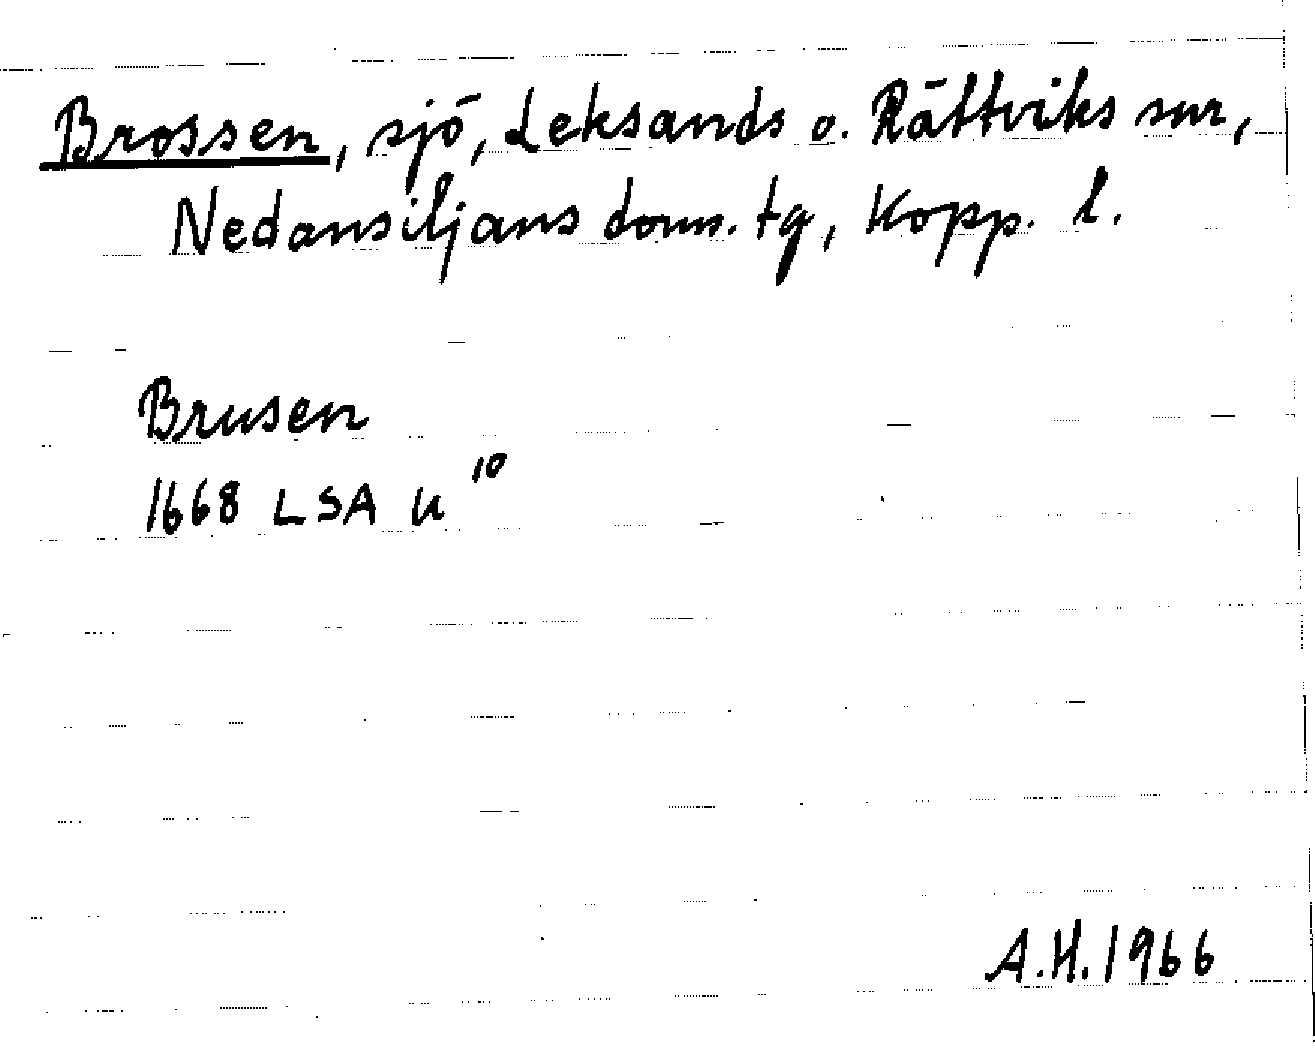 Brossen, sjö, Leksands o. Rättviks snr,
Nedansiljans doms. tg, Kopp. l.
Brusen
1668 LSA U 10
A.H. 1966